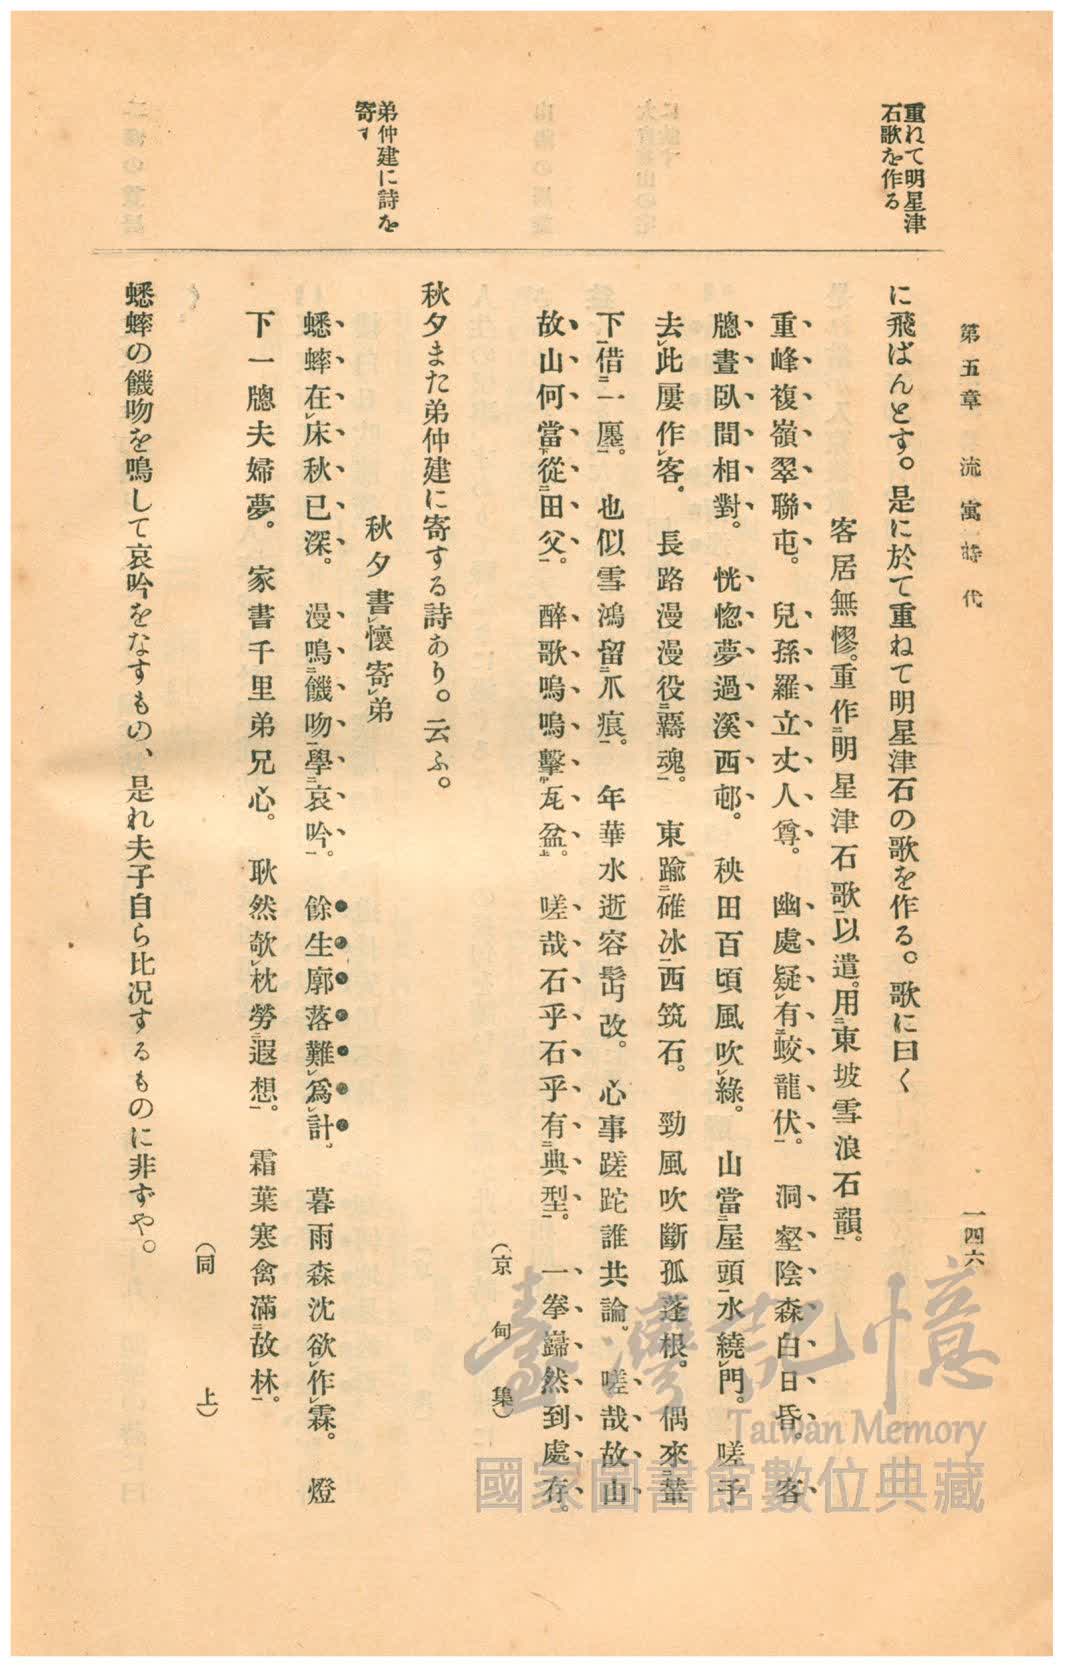 重ねて明星津
石歌を作る
弟仲建に詩を
寄す
第五章 流寓時代
一四六
に飛ばんとす。是に於て重ねて明星津石の歌を作る。歌に曰く
客居無憀。重作明星津石歌以遣。用東坡雪浪石韻。
重峰複嶺翠聯屯。兒孫羅立丈人尊。幽處疑有蛟龍伏。洞壑陰森白日昏。客
牕晝臥間相對。恍惚夢過溪西邨。秧田百頃風吹綠。山當屋頭水繞門。嗟予
去此屢作客。長路漫漫役羈魂。東踰碓冰西筑石。勁風吹斷孤蓬根。偶來輦
下借一廛。也似雪鴻留爪痕。年華水逝容髩改。心事蹉跎誰共論。嗟哉故山
故山何當從田父。醉歌嗚嗚擊瓦盆。嗟哉石乎石乎有典型。一拳巋然到處存。
(京甸集)
秋夕また弟仲建に寄する詩あり。云ふ。
秋夕書懷寄弟
蟋蟀在床秋已深。漫鳴饑吻學哀吟。餘生廓落難爲計。暮雨森沈欲作霖。燈
下一牕夫婦夢。家書千里弟兄心。耿然欹枕勞遐想。霜葉寒禽滿故林。
(同上)
蟋蟀の饑吻を鳴して哀吟をなすもの、是れ夫子自ら比況するものに非ずや。
臺灣記憶
Taiwan Memory
國家圖書館數位典藏